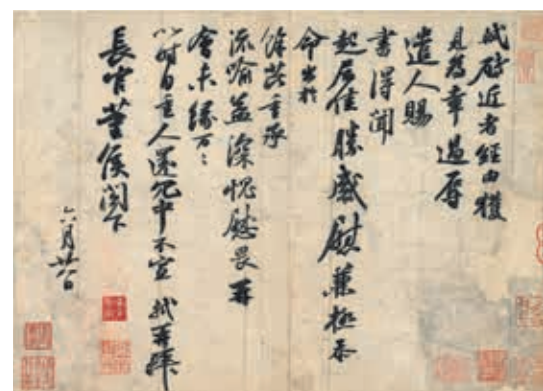 軾啟近者經由獲
見為幸過辱
遣人賜
書得聞
起居佳勝感慰兼極忝
命出於
餘芘重承
流喻益深愧畏再
會未緣萬〻
以時自重人還冗中不宣軾再拜
長官董侯閣下
六月廿八日